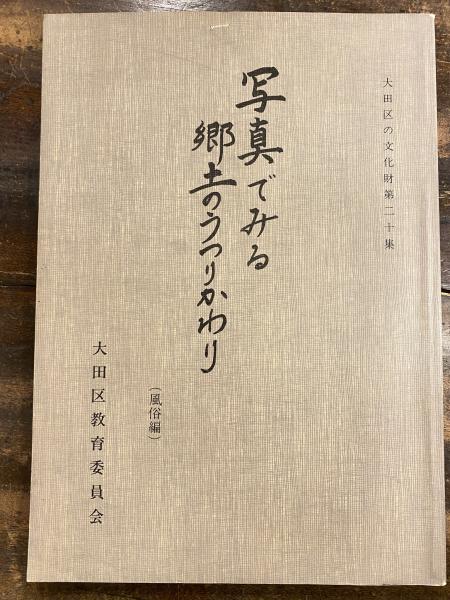 大田区の文化財第二十集
写真でみる
郷土のうつりかわり
（風俗編）
大田区教育委員会